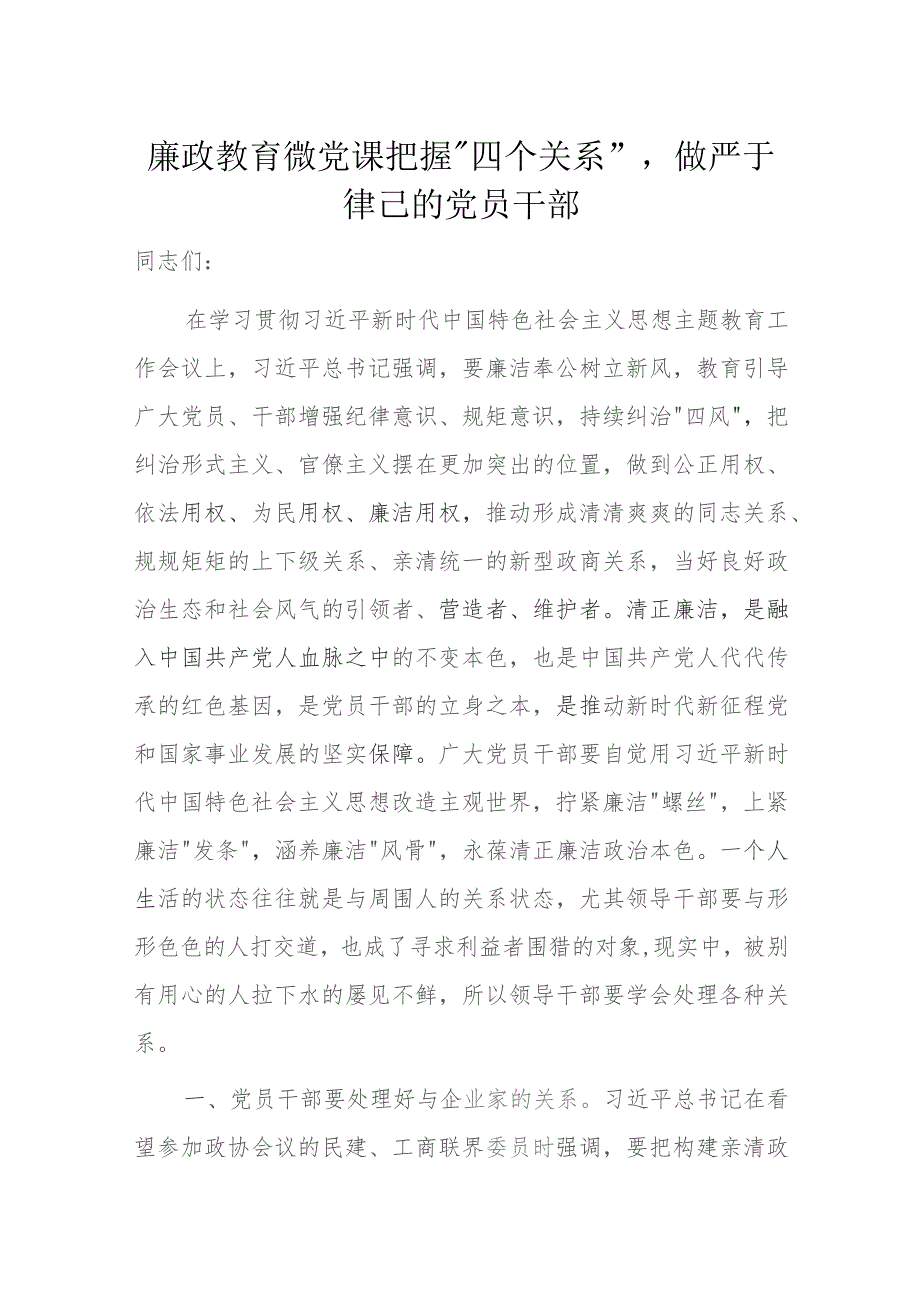 廉政教育微党课把握"四个关系”，做严于
律己的党员干部
同志们：
在学习贯彻习近平新时代中国特色社会主义思想主题教育工
作会议上，习近平总书记强调，要廉洁奉公树立新风，教育引导
广大党员、干部增强纪律意识、规矩意识，持续纠治"四风"，把
纠治形式主义、官僚主义摆在更加突出的位置，做到公正用权、
依法用权、为民用权、廉洁用权，推动形成清清爽爽的同志关系、
规规矩矩的上下级关系、亲清统一的新型政商关系，当好良好政
治生态和社会风气的引领者、营造者、维护者。清正廉洁，是融
入中国共产党人血脉之中的不变本色，也是中国共产党人代代传
承的红色基因，是党员干部的立身之本，是推动新时代新征程党
和国家事业发展的坚实保障。广大党员干部要自觉用习近平新时
代中国特色社会主义思想改造主观世界，拧紧廉洁"螺丝"，上紧
廉洁"发条"，涵养廉洁"风骨"，永葆清正廉洁政治本色。一个人
生活的状态往往就是与周围人的关系状态，尤其领导干部要与形
形色色的人打交道，也成了寻求利益者围猎的对象,现实中，被别
有用心的人拉下水的屡见不鲜，所以领导干部要学会处理各种关
系。
一、党员干部要处理好与企业家的关系。习近平总书记在看
望参加政协会议的民建、工商联界委员时强调，要把构建亲清政